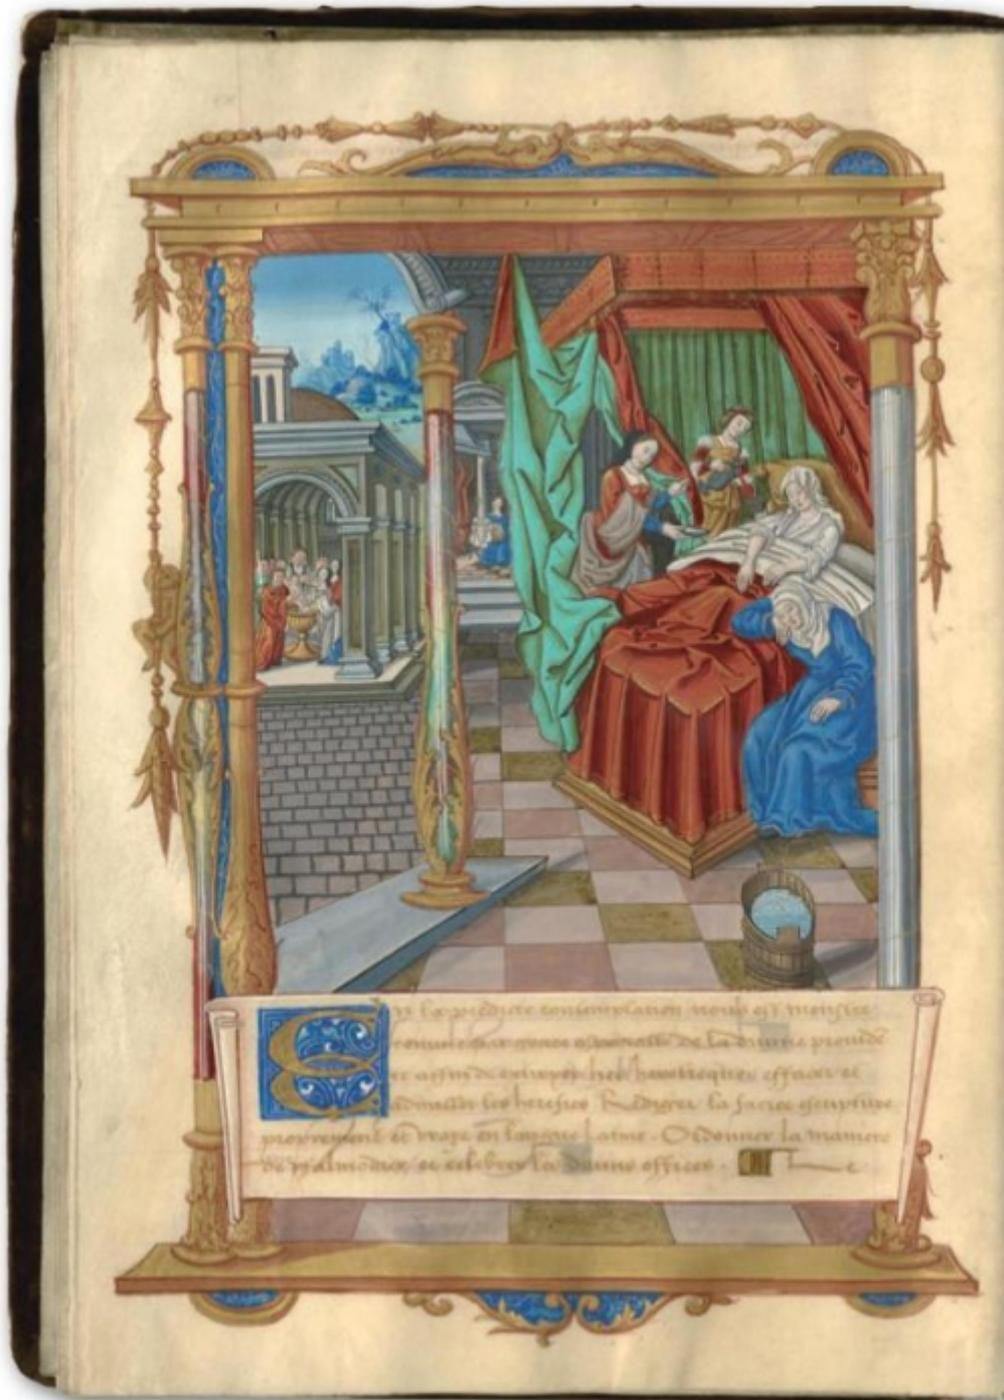 En la predicte contemplation nous est monstre
grace de la divine
affin de extirper les heretiques effacer et
les heresies Rediger la sacree escripture
proprement et vraye en langue latine. Ordonner la maniere
de psalmodier et celebrer les divins offices.